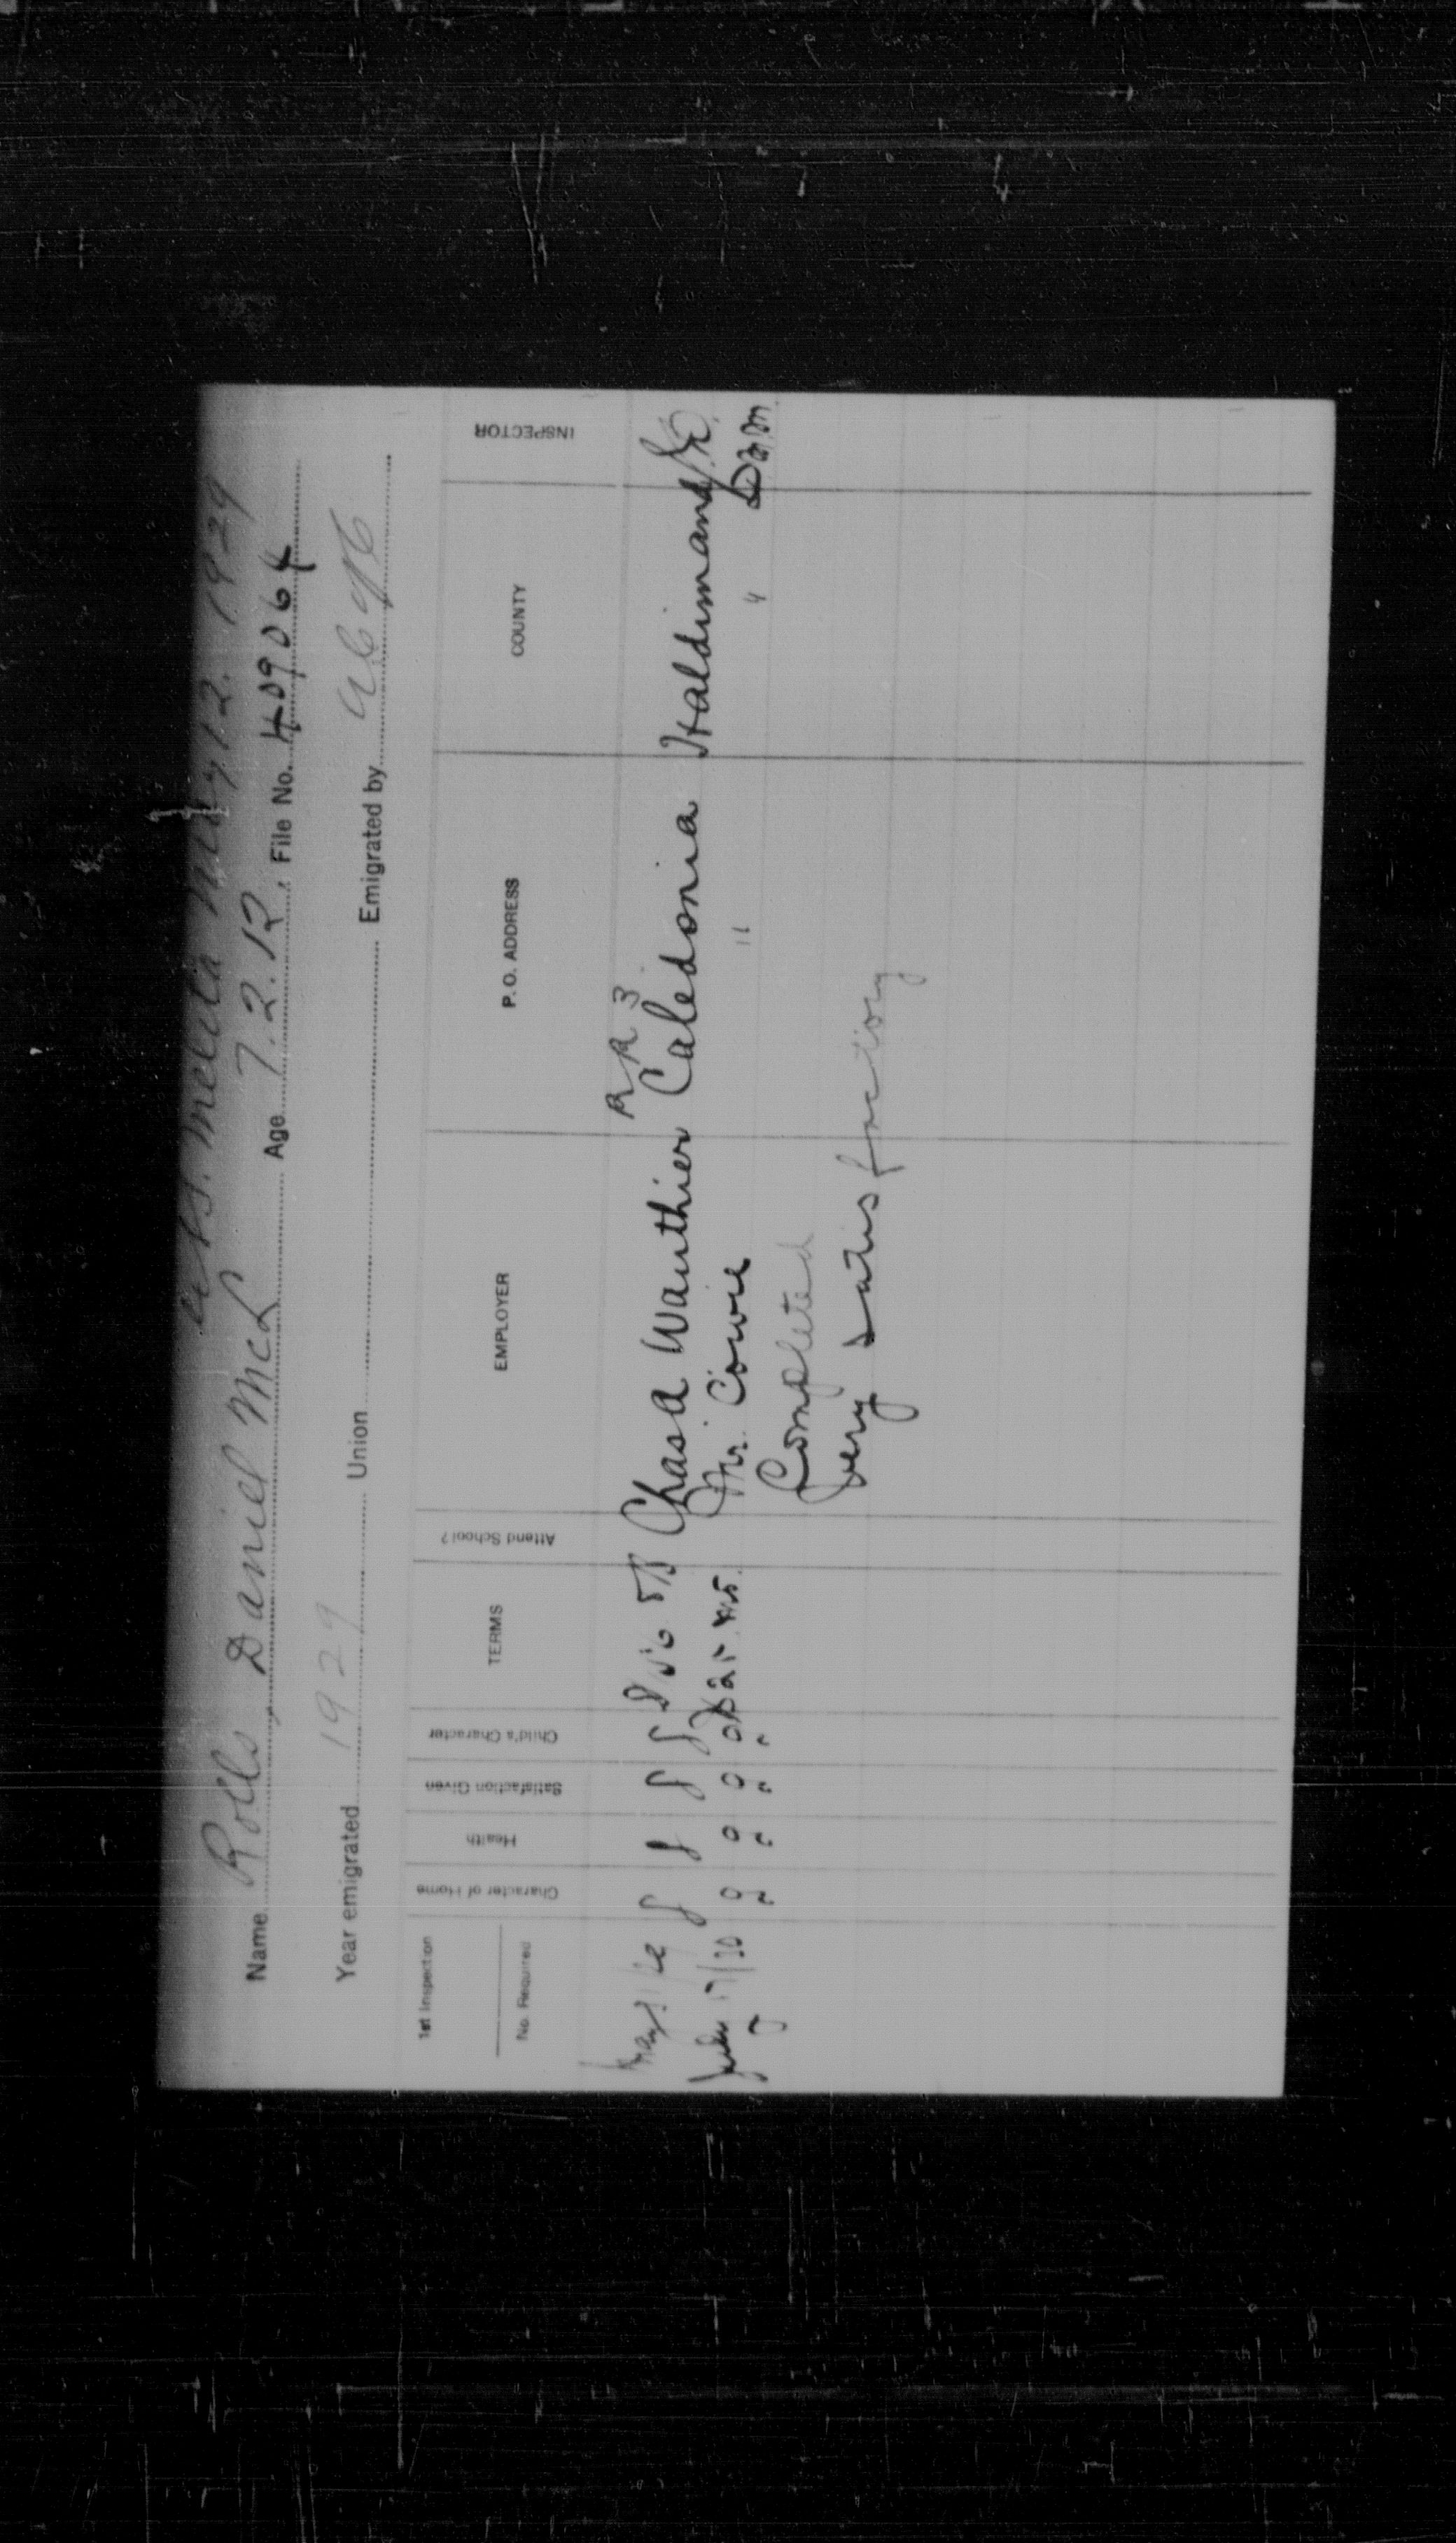 S.S. Melita May 12. 1929
Name Rolls, Daniel McL Age 7.2.12 File No. 409064
Year emigrated 1929 Union Emigrated by
1st Inspection
No. Required
Character of Home
Health
Satisfaction Given
Child's Character
TERMS
Attend School?
EMPLOYER
P. O. ADDRESS
COUNTY
INSPECTOR
RR 3
g g g g Chas A Wauthier Caledonia Haldimand
July 17/30 g g g Mr. Cowie "
Completed
Very satisfactory